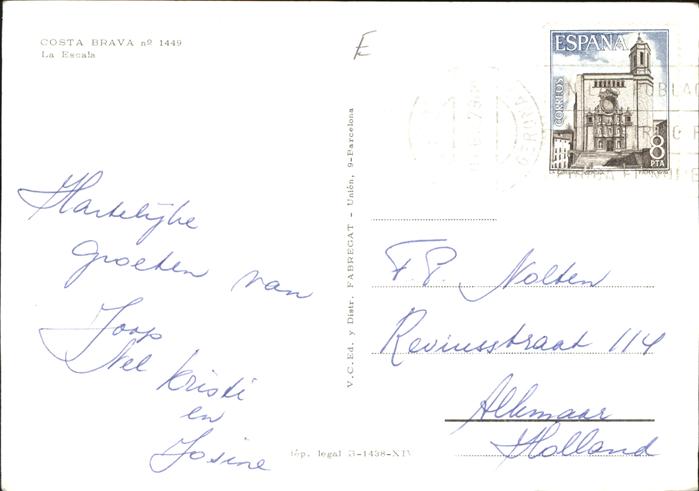 COSTA BRAVA nº 1449
La Escala
E
ESPAÑA
CORREOS
8
PTA
GERONA
Hartelijke
groeten van
Joop
Nel Kristi
en
Josine
V.C. Ed. y Distr. FABREGAT - Unión, 9-Barcelona
F.P. Nolten
Reviusstraat 114
Alkmaar
Holland
Dép. legal B-1438-XIV